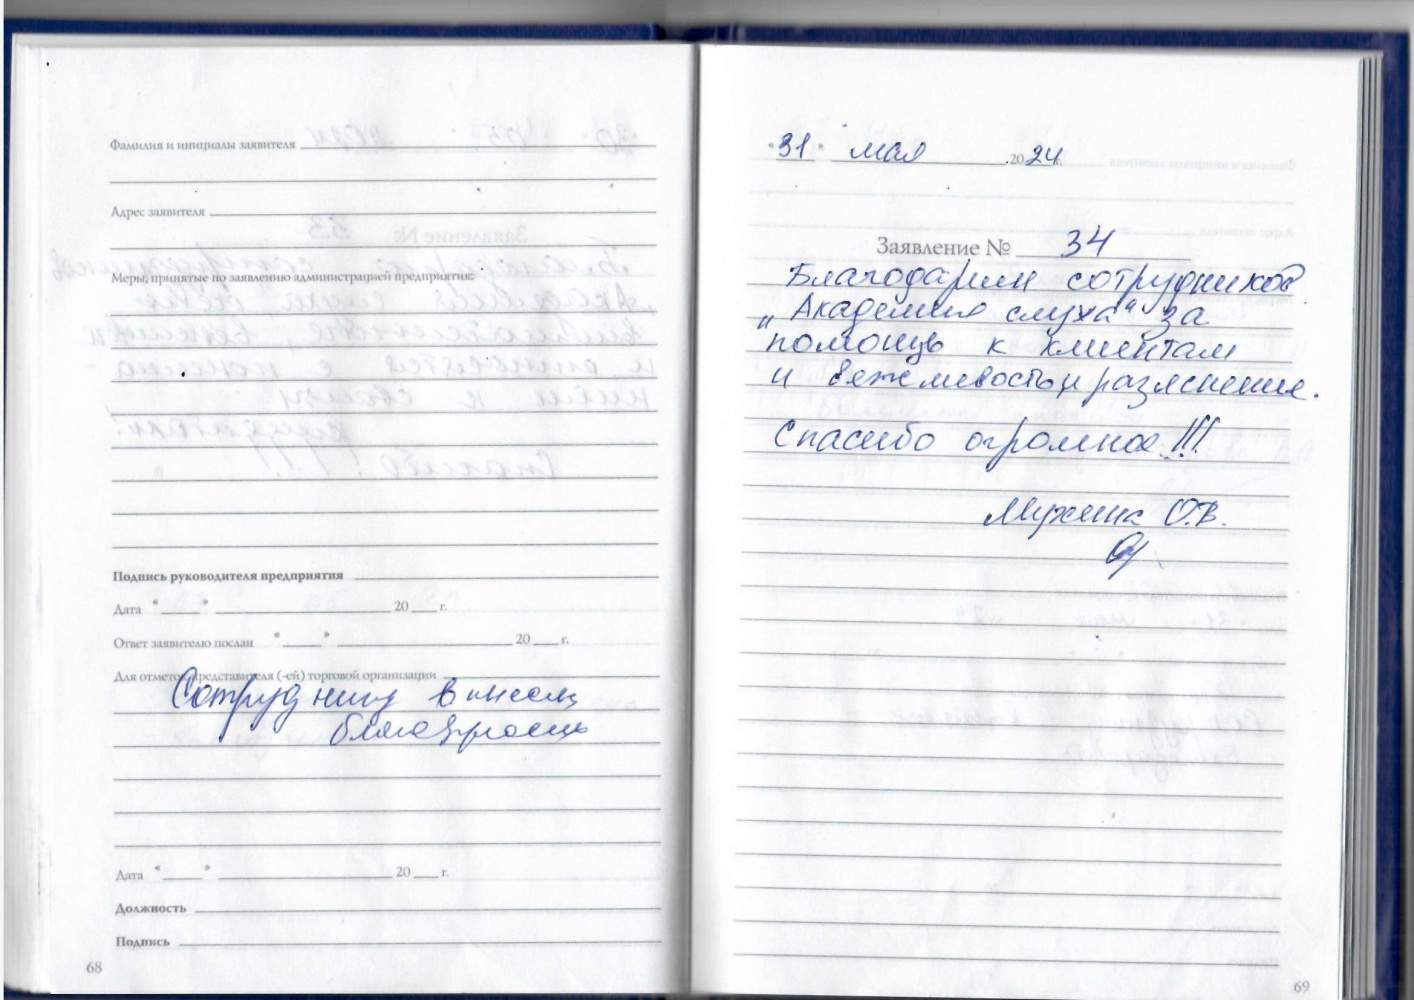 Фамилия и инициалы заявителя
Адрес заявителя
Меры, принятые по заявлению администрацией предприятия:
Подпись руководителя предприятия
Дата " " 20 г.
Ответ заявителю послан " " 20 г.
Для отметок представителя (-ей) торговой организации
Сотруднику
благодарность
Дата " " 20 г.
Должность
Подпись
68
"31" мая 2024 г.
Заявление № 34
Благодарим сотрудников
„Академия слуха" за
помощь к клиентам
и вежливость и разяснение.
Спасибо огромное!!!
Мухина О.В.
69